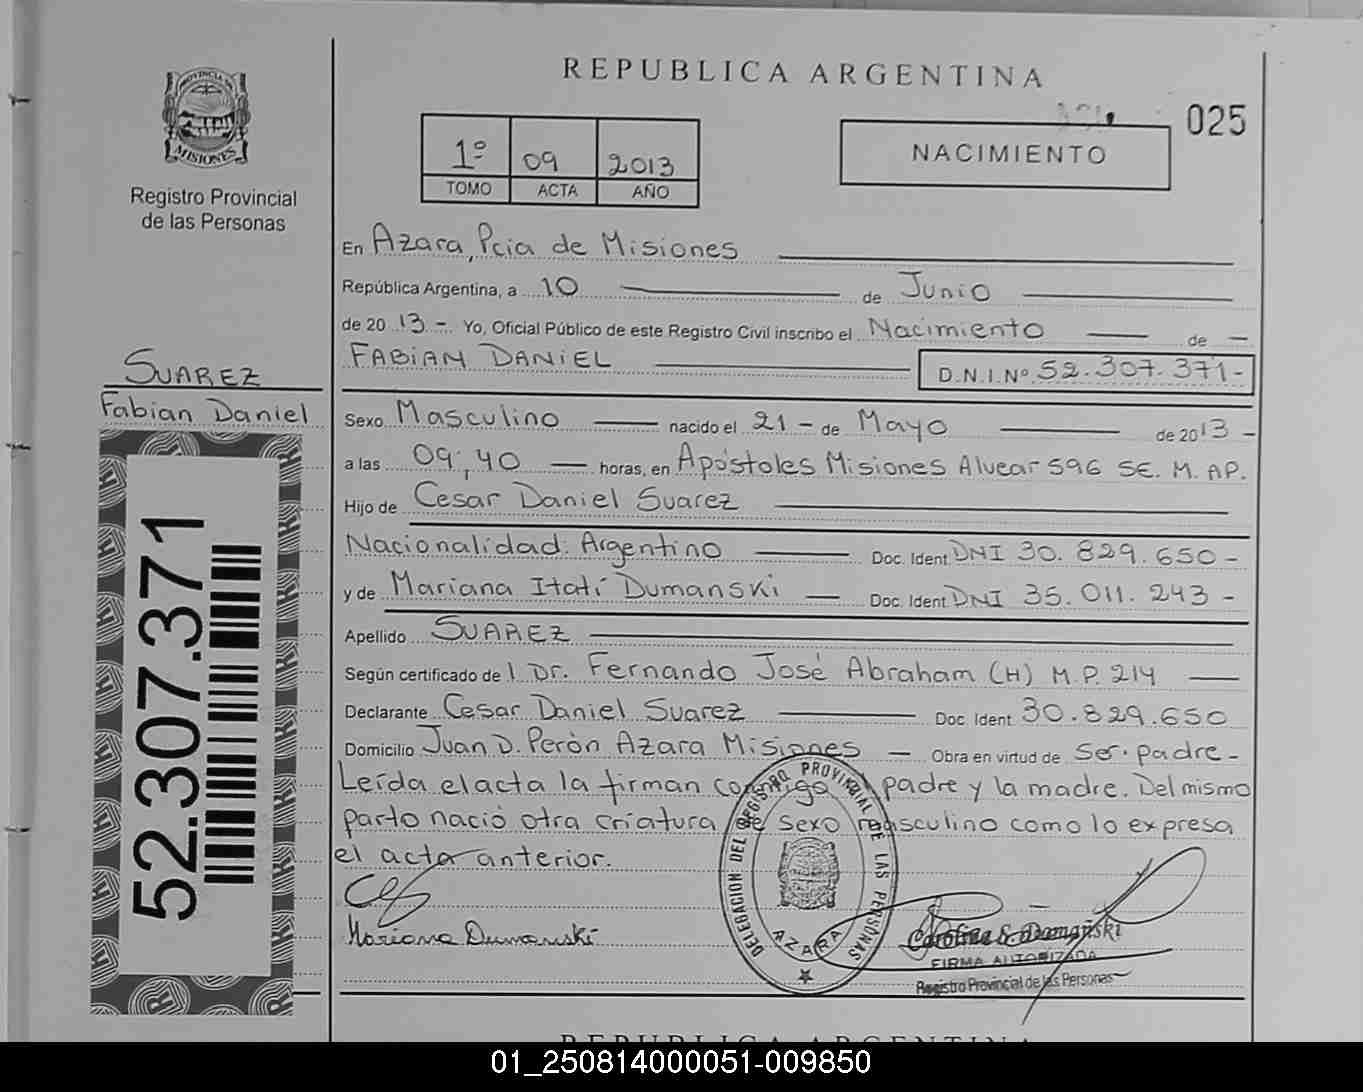 REPUBLICA ARGENTINA
025
PROVINCIA DE
MISIONES
Registro Provincial
de las Personas
1º 09 2013
TOMO ACTA AÑO
NACIMIENTO
En Azara, Pcia de Misiones
República Argentina, a 10 de Junio
de 20 13 - Yo, Oficial Público de este Registro Civil inscribo el Nacimiento de -
FABIAN DANIEL D.N.I.Nº 52.307.371-
SUAREZ
Fabian Daniel
Sexo Masculino nacido el 21 - de Mayo de 2013 -
a las 09;40 horas, en Apóstoles Misiones Alvear 596 SE. M. AP.
Hijo de Cesar Daniel Suarez
Nacionalidad: Argentino Doc. Ident DNI 30.829.650-
y de Mariana Itatí Dumanski Doc. Ident DNI 35.011.243 -
Apellido SUAREZ
Según certificado de l Dr. Fernando José Abraham (H) M.P. 214
Declarante Cesar Daniel Suarez Doc. Ident 30.829.650
Domicilio Juan D. Perón Azara Misiones - Obra en virtud de Ser. padre -
Leída el acta la firman conmigo padre y la madre. Del mismo
parto nació otra criatura de sexo masculino como lo expresa
el acta anterior.
52.307.371
DELEGACION DEL REGISTRO PROVINCIAL DE LAS PERSONAS
AZARA
Mariana Dumanski
Carolina S. Dumański
FIRMA AUTORIZADA
Registro Provincial de las Personas
REPUBLICA ARGENTINA
01_250814000051-009850